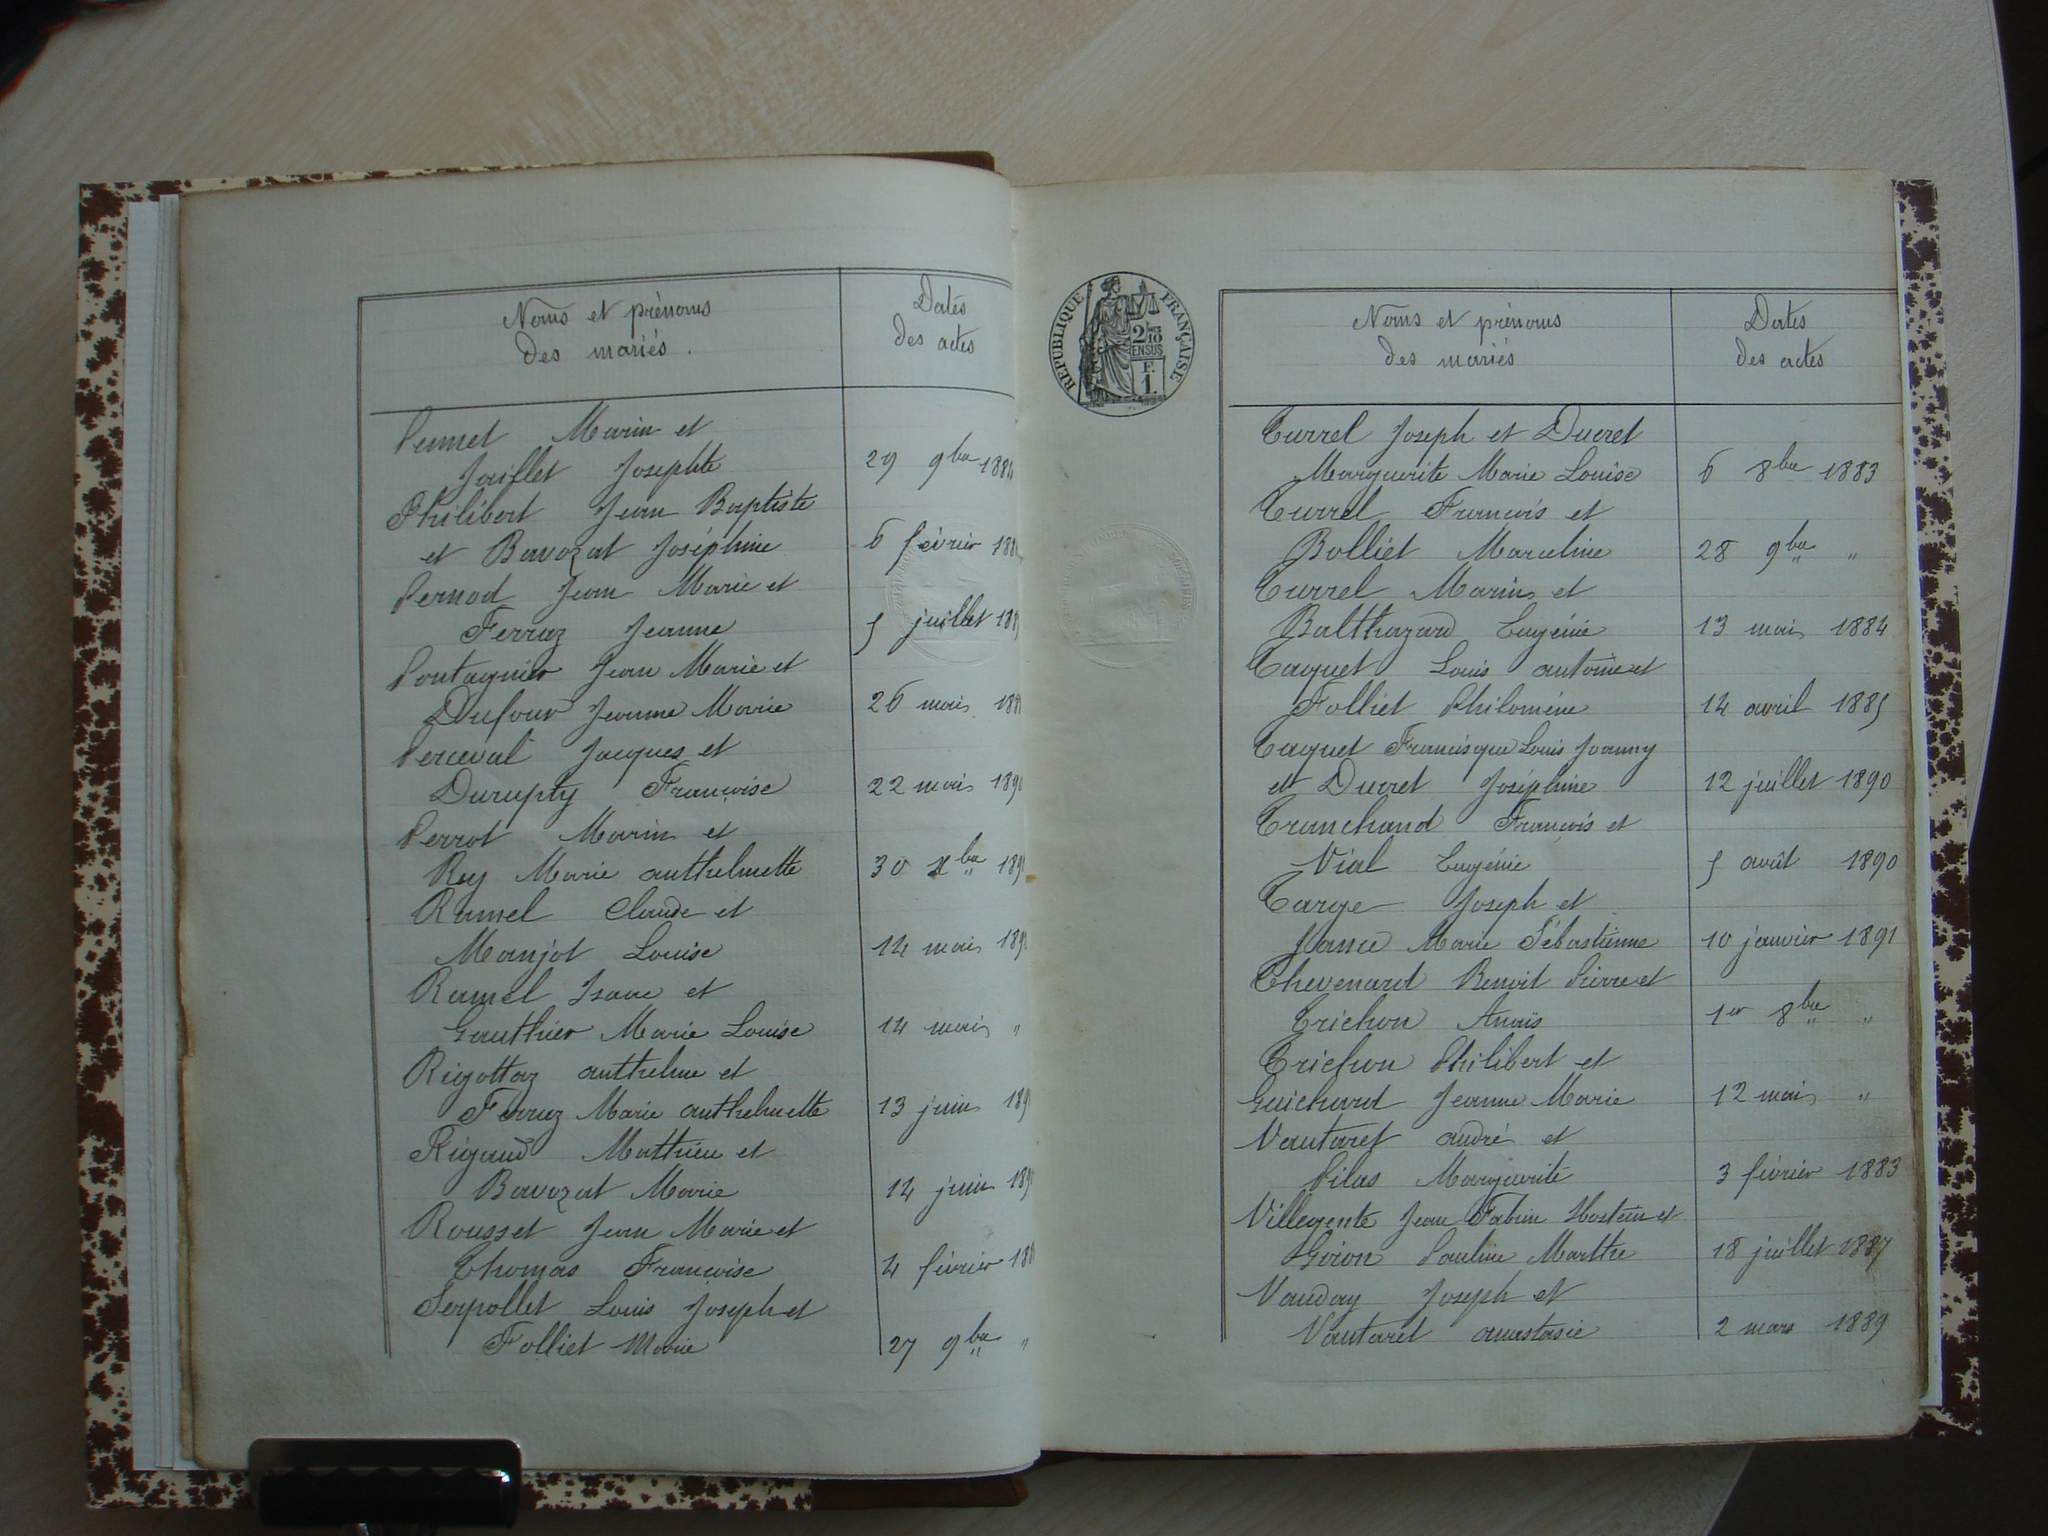 Noms et prénoms
des mariés.
Dates
des actes
Pennet Marin et
Juillet Josephte 29 9bre
Philibert Jean Baptiste
et Bavozat Joséphine 6 février
Pernod Jean Marie et
Ferraz Jeanne 5 juillet
Pontagnier Jean Marie et
Dufour Jeanne Marie 26 mai
Perceval Jacques et
Durupty Françoise 22 mai
Perrot Marin et
Rey Marie anthelmette 30
Ramel Claude et
Monjot Louise 14 mai
Ramel Isaac et
Gauthier Marie Louise 14 mai "
Rigottaz anthelme et
Ferraz Marie anthelmette 13 juin
Rigaud Matthieu et
Bavozat Marie 14 juin
Rousset Jean Marie et
Thomas Françoise 4 février
Serpollet Louis Joseph et
Folliet Marie 27 9bre "
RÉPUBLIQUE FRANÇAISE
2/10
EN SUS
F.
1.
Noms et prénoms
des mariés
Dates
des actes
Turrel Joseph et Ducret
Marguerite Marie Louise 6 8bre 1883
Turrel François et
Bolliet Marceline 28 9bre "
Turrel Marin et
Balthazard Eugénie 13 mai 1884
Taquet Louis antoine et
Folliet Philomène 14 avril 1885
Taquet Francisque Louis Joanny
et Ducret Joséphine 12 juillet 1890
Tranchand François et
Vial Eugénie 5 août 1890
Targe Joseph et
Marie Sébastienne 10 janvier 1891
Thevenard Benoit Pierre et
Trichon Anaïs 1er 8bre "
Trichon Philibert et
Guichard Jeanne Marie 12 mai "
Vautaret andré et
Pilas Marguerite 3 février 1883
Villegente Jean Fabien et
Goion Pauline Marthe 18 juillet 1887
Vauday Joseph et
Vautaret anastasie 2 mars 1889